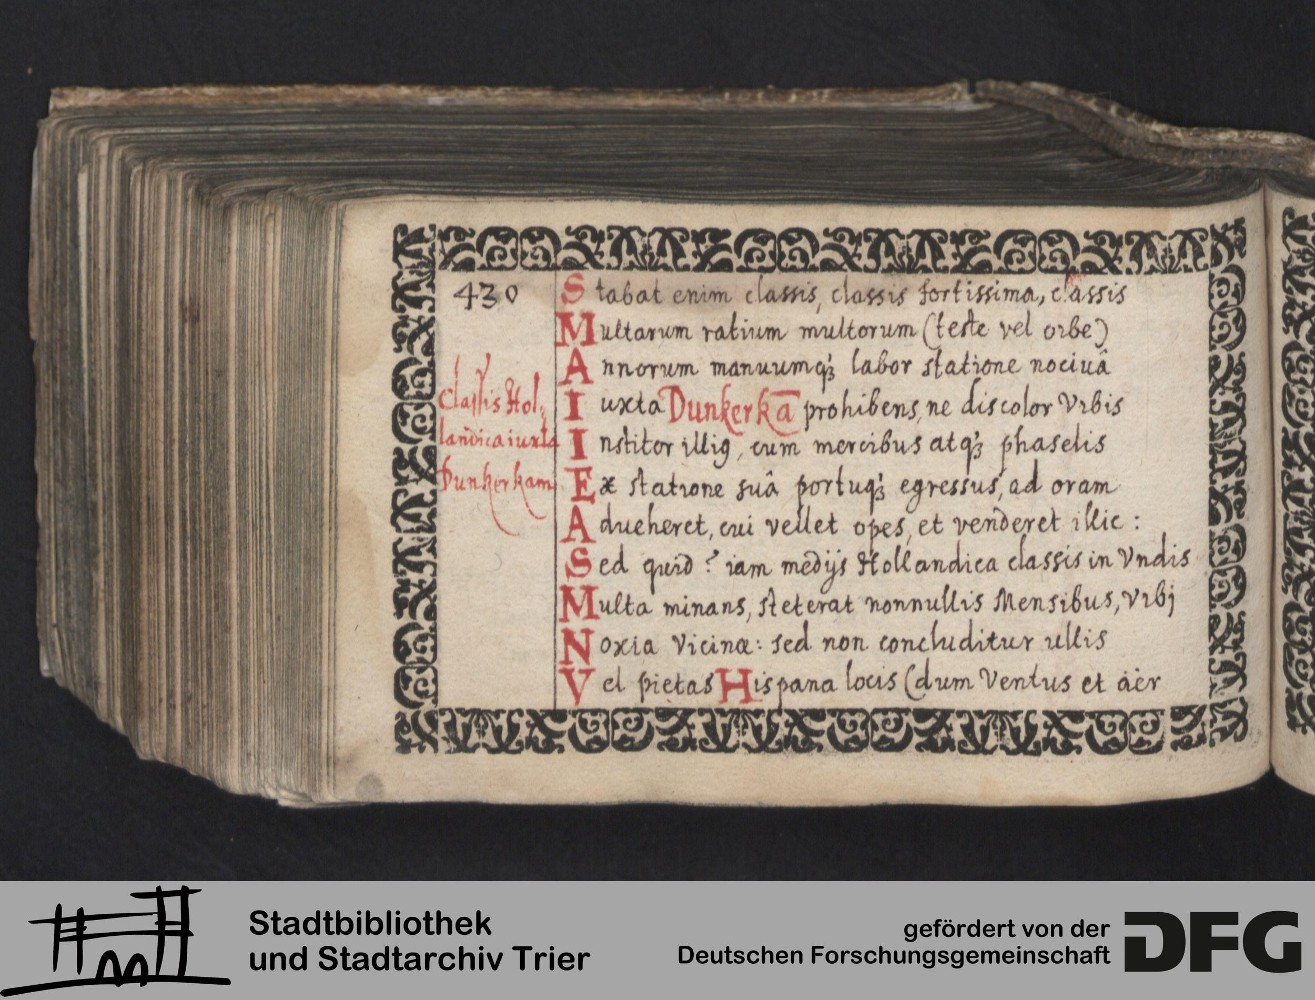 430
Stabat enim classis, classis fortissima, classis
Multarum ratium multorum (teste vel orbe)
Annorum manuumq́; labor statione nociuâ
Iuxta Dunkerkā prohibens, ne discolor Vrbis
Classis Hol,
landica iuxta
Dunkerkam
Institor illiꝰ, cum mercibus atq́; phaselis
Ex statione suâ portuq́; egressus, ad oram
Adueheret, cui vellet opes, et venderet illic :
Sed quid ? iam medijs Hollandica classis in Vndis
Multa minans, steterat nonnullis Mensibus, Vrbj
Noxia Vicinæ: sed non concluditur ullis
Vel pietas Hispana locis (dum Ventus et äer
Stadtbibliothek
und Stadtarchiv Trier
gefördert von der
Deutschen Forschungsgemeinschaft
DFG